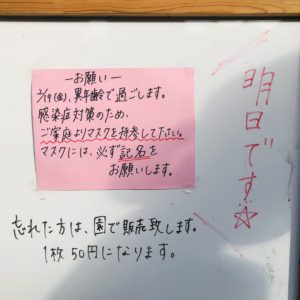 ―お願い―
2/19(金)、異年齢で過ごします。
感染症対策のため、
ご家庭よりマスクを持参して下さい。
マスクには、必ず記名を
お願いします。
明日です☆
忘れた方は、園で販売致します。
1枚50円になります。